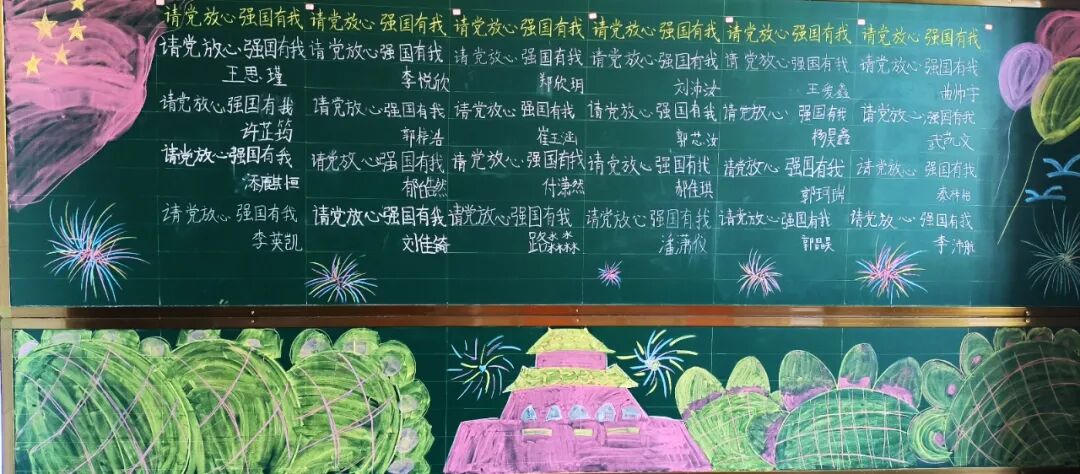 请党放心强国有我 请党放心强国有我 请党放心强国有我 请党放心强国有我 请党放心强国有我 请党放心强国有我
请党放心强国有我 请党放心强国有我 请党放心强国有我 请党放心强国有我 请党放心强国有我 请党放心强国有我
王思瑾 李悦欣 郑欣玥 刘沛汝 王爱鑫 曲帅宇
请党放心强国有我 请党放心强国有我 请党放心强国有我 请党放心强国有我 请党放心强国有我 请党放心强国有我
许芷筠 郭梓浩 崔玉涵 郭芯汝 杨昊鑫 武凯文
请党放心强国有我 请党放心强国有我 请党放心强国有我 请党放心强国有我 请党放心强国有我 请党放心强国有我
麒恒 郁皓然 付潇然 郝佳琪 郭珂瑞
请党放心强国有我 请党放心强国有我 请党放心强国有我 请党放心强国有我 请党放心强国有我 请党放心强国有我
李英凯 刘佳锜 路淼淼 潘潇仪 李沛